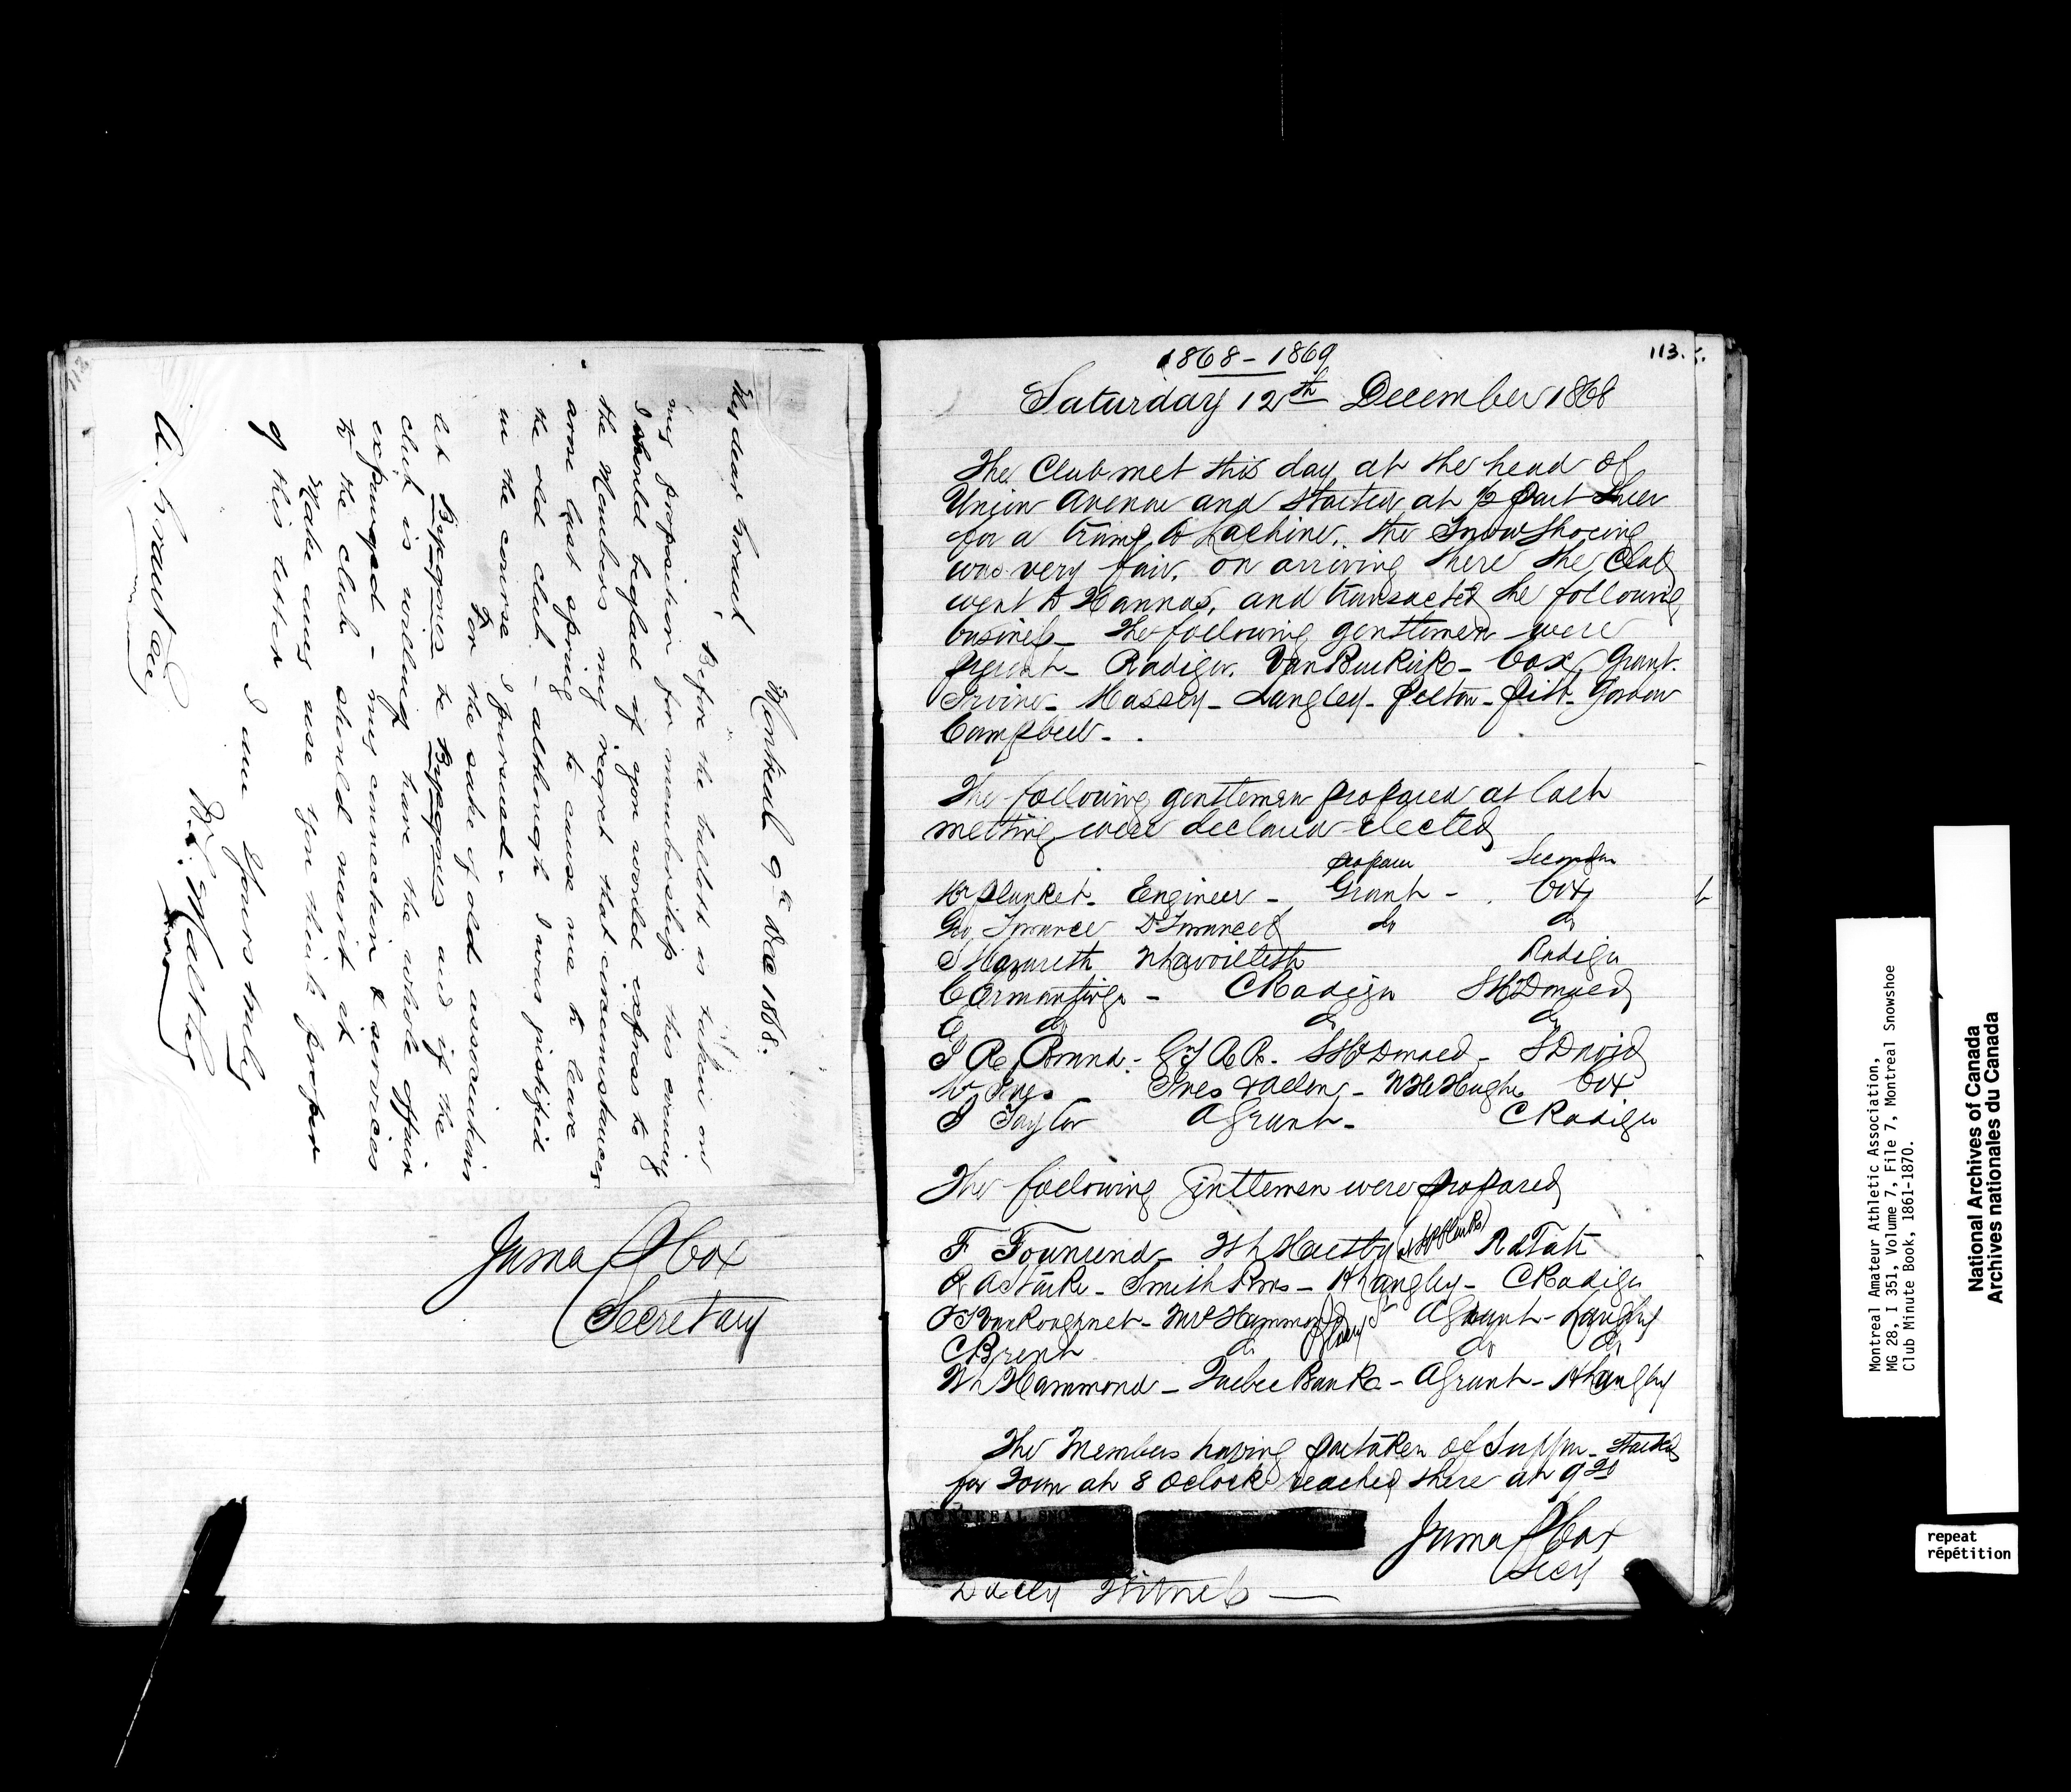 112
Montreal 9th Dec 1868.
My dear Grant
Before the ballot is taken on
my proposition for membership this evening
I should be glad if you would express to
the Members my regret that circumstances
arose last spring to cause me to leave
the old club – although I was justified
in the course I pursued –
For the sake of old associations
let Bygones be Bygones and if the
club is willing have the whole affair
expunged – my connection & services
to the club should merit it
Make any use you think proper
of this letter
I am Yours truly
N. Maltby
A. Grant Esq
Secretary
1868 – 1869
113.
Saturday 12th December 1868
The Club met this day at the head of
Union Avenue and started at ½ past three
for a tramp to Lachine. the Snow Shoeing
was very fair. on arriving there the Club
went to Hannas, and transacted the following
business – The following gentlemen were
present – Radiger. Van Buskirk – Cox, Grant.
Irvine – Massey – Langley – Pelton – Pitt – Gordon
Campbell –
The following gentlemen proposed at last
meeting were declared elected
proposer Seconder
Plunket – Engineer – Grant – Cox
Geo Torrance D Torrance & do do
Nazareth Radiger
C Radiger McDonald
do do do
Brand – G T R R. McDonald – S David
Ives Ives & Allen – W H Hughes Cox
J Taylor A Grant – C Radiger
The following Gentlemen were proposed
F Townsend – R Tate
A Starke – Smith Bros – H Langley – C Radiger
VanKoughnet – Hammond A Grant – Langley
C Brent do do do
Hammond – Quebec Bank – A Grant – H Langley
The Members having partaken of Supper – started
for Town at 8 Oclock reached there at 9 20
MONTREAL SNO
Cox
Secy
Daily Witness —
Montreal Amateur Athletic Association,
MG 28, I 351, Volume 7, File 7, Montreal Snowshoe
Club Minute Book, 1861-1870.
National Archives of Canada
Archives nationales du Canada
repeat
répétition